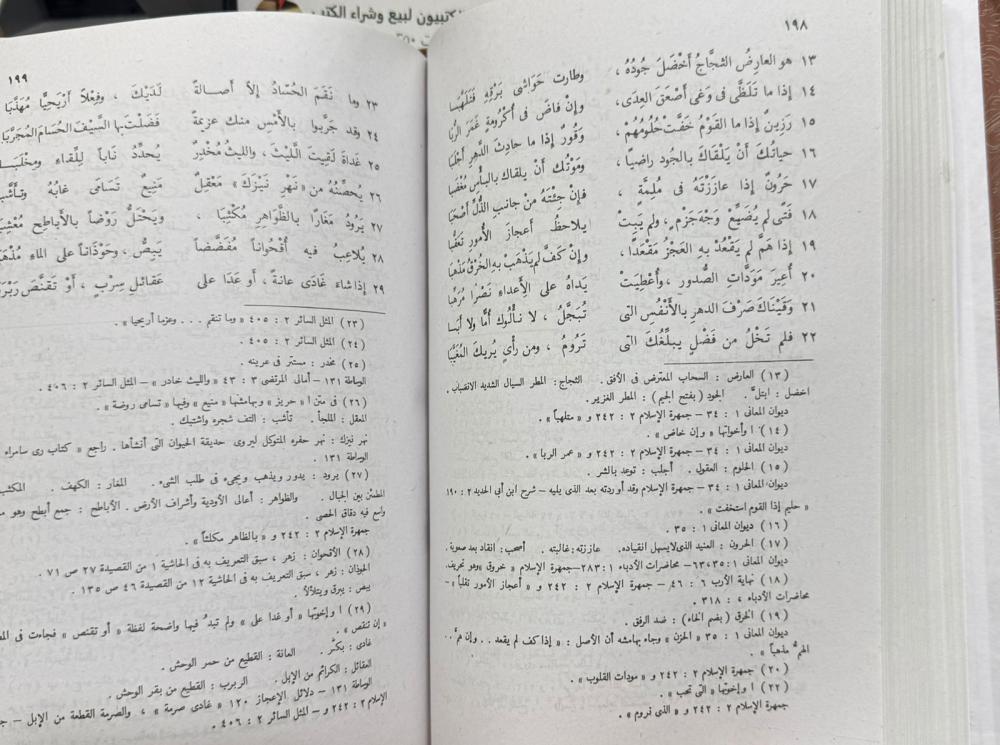 الكتبيون لبيع وشراء الكتب
١٩٨
١٣ هو العارِضُ الثجَّاجُ أخْضَلَ جُودُهُ ، وطارت حَوَاشِى بَرْقِهِ فتَلَهَّبا
١٤ إذا ما تَلَظَّى فى وَغًى أصْعَقَ العِدَى، وإنْ فاضَ فى أُكْرُومةٍ غَمَرَ الرُّبا
١٥ رَزِينٌ إذا ما القَوْمُ خَفَّتْ حُلُومُهُمْ ، وَقُورٌ إذا ما حادِثُ الدَّهرِ أجْلَبا
١٦ حياتُكَ أنْ يَلْقَاكَ بالجُود راضيًا ، ومَوْتُك أنْ يلقاك بالبأسِ مُغْضَبا
١٧ حَرُونٌ إذا عازَزْتَهُ فى مُلِمَّةٍ ، فإنْ جِئتَهُ منْ جانبِ الذُّلِّ أصْحَبا
١٨ فَتًى لم يُضَيِّعْ وَجْهَ حَزْمٍ ، ولم يَبِتْ يلاحظُ أعجازَ الأمورِ تَعَقُّبا
١٩ إذا هَمَّ لم يَقْعُدْ بِهِ العَجْزُ مَقْعَدًا ، وإنْ كَفَّ لم يَذْهَبْ بهِ الخُرْقُ مَذْهَبا
٢٠ أُعِيرَ مَوَدَّاتِ الصُّدور ، وأُعْطِيَتْ يَداهُ على الأعداءِ نَصْرًا مُرَهَّبا
٢١ وَقَيْنَاكَ صَرْفَ الدهرِ بالأَنْفُسِ التى تُبَجَّلُ ، لا نَأْلُوكَ أُمًّا ولا أبا
٢٢ فلم تَخْلُ من فَضْلٍ يبلِّغُكَ التى تَرُومُ ، ومن رأىٍ يُريكَ المُغَيَّبا
(١٣) العارض : السحاب المعترض فى الأفق . الثجاج : المطر السيال الشديد الانصباب .
اخضل : ابتلَّ . الجود (بفتح الجيم) : المطر الغزير .
ديوان المعانى ١ : ٣٤ – جمهرة الإسلام ٢ : ٢٤٢ و « متلهبا » .
(١٤) ا وأخواتها « وإن خاض » .
ديوان المعانى ١ : ٣٤ – جمهرة الإسلام ٢ : ٢٤٢ و « عمر الربا » .
(١٥) الحلوم : العقول . أجلب : توعد بالشر .
ديوان المعانى ١ : ٣٤ – جمهرة الإسلام وقد أوردته بعد الذى يليه – شرح ابن أبى الحديد ٢ : ١٩٠
« حليم إذا القوم استخفت » .
(١٦) ديوان المعانى ١ : ٣٥ .
(١٧) الحرون : العنيد الذى لا يسهل انقياده . عاززته : غالبته . أصحب : انقاد بعد صعوبة .
ديوان المعانى ١ : ٣٥ ، ٦٣ – محاضرات الأدباء ١ : ٢٨٣ – جمهرة الإسلام « خروق » وهو تحريف .
(١٨) نهاية الأرب ٦ : ٤٦ – جمهرة الإسلام ٢ : ٢٤٢ و « أعجاز الأمور تقلبا » –
محاضرات الأدباء ، : ٣١٨ .
(١٩) الخرق (بضم الخاء) : ضد الرفق .
ديوان المعانى ١ : ٣٥ « الحزن » وجاء بهامشه أن الأصل : « إذا كف لم يقعد . . وإن همَّ . .
الهمُّ مذهبا » .
(٢٠) جمهرة الإسلام ٢ : ٢٤٢ و « مودات القلوب » .
(٢٢) ا وإخوتها « التى تحب » .
جمهرة الإسلام ٢ : ٢٤٢ و « الذى تروم » .
١٩٩
٢٣ وما نَقَمَ الحُسَّادُ إلاَّ أصالةً لَدَيْكَ ، وفِعْلاً أرْيَحيًّا مُهَذَّبَا
٢٤ وقد جَرَّبوا بالأمْسِ منك عزيمةً فَضَلْتَ بها السَّيْفَ الحُسَامَ المُجَرَّبَا
٢٥ غَداةَ لَقِيتَ اللَّيْثَ ، والليثُ مُخْدِرٌ يُحَدِّدُ ناباً لِلِّقاءِ ومِخْلَبَا
٢٦ يُحصِّنُهُ من « نَهْرِ نَيْزَكَ » مَعْقِلٌ مَنِيعٌ تَسَامَى غابُهُ وتَأَشَّبَا
٢٧ يَرُودُ مَغَارًا بالظَّواهِرِ مُكْثَبًا ، ويَحْتَلُّ رَوْضاً بالأباطِحِ مُعْشِبَا
٢٨ يُلاعِبُ فيه أُقْحُواناً مُفَضَّضاً يَبِصُّ ، وحَوْذَاناً على الماءِ مُذْهَبَا
٢٩ إذا شاء غَادَى عانةً ، أو عَدَا على عَقائلِ سِرْبٍ ، أوْ تَقَنَّصَ رَبْرَبَا
(٢٣) المثل السائر ٢ : ٤٠٥ « وما تنقم . . . وعزما أريحيا » .
(٢٤) المثل السائر ٢ : ٤٠٥ .
(٢٥) مخدر : مستتر فى عرينه .
الوساطة ١٣١ – أمالى المرتضى ٣ : ٤٣ « والليث خادر » – المثل السائر ٢ : ٤٠٦ .
(٢٦) فى متن ا « حريز » وبهامشها « منيع » وفيها « تسامى روضة » .
المعقل : الملجأ . تأشب : التف شجره واشتبك .
نهر نيزك : نهر حفره المتوكل ليروى حديقة الحيوان التى أنشأها . راجع « كتاب رى سامراء
الوساطة ١٣١ .
(٢٧) يرود : يدور ويذهب ويجىء فى طلب الشىء . المغار : الكهف . المكثب
المطمئن بين الجبال . والظواهر : أعالى الأودية وأشراف الأرض . الأباطح : جمع أبطح وهو
واسع فيه دقاق الحصى .
جمهرة الإسلام ٢ : ٢٤٢ و « بالظاهر مكلثاً » .
(٢٨) الأقحوان : زهر ، سبق التعريف به فى الحاشية ١ من القصيدة ٢٧ ص ٧١ .
الحوذان : زهر ، سبق التعريف به فى الحاشية ١٢ من القصيدة ٤٦ ص ١٣٥ .
يبص : يبرق ويتلألأ .
(٢٩) ا وإخوتها « أو غدا على » ولم تبدُ فيها واضحة لفظة « أو تقنص » فجاءت فى
« إن تنقص » .
غادى : بكَّر . العانة : القطيع من حمر الوحش .
العقائل : الكرائم من الإبل . الربرب : القطيع من بقر الوحش .
الوساطة ١٣١ – دلائل الإعجاز ١٢٠ « غادى صرمة » ، والصرمة القطعة من الإبل –
الإسلام ٢ : ٢٤٢ و – المثل السائر ٢ : ٤٠٦ .